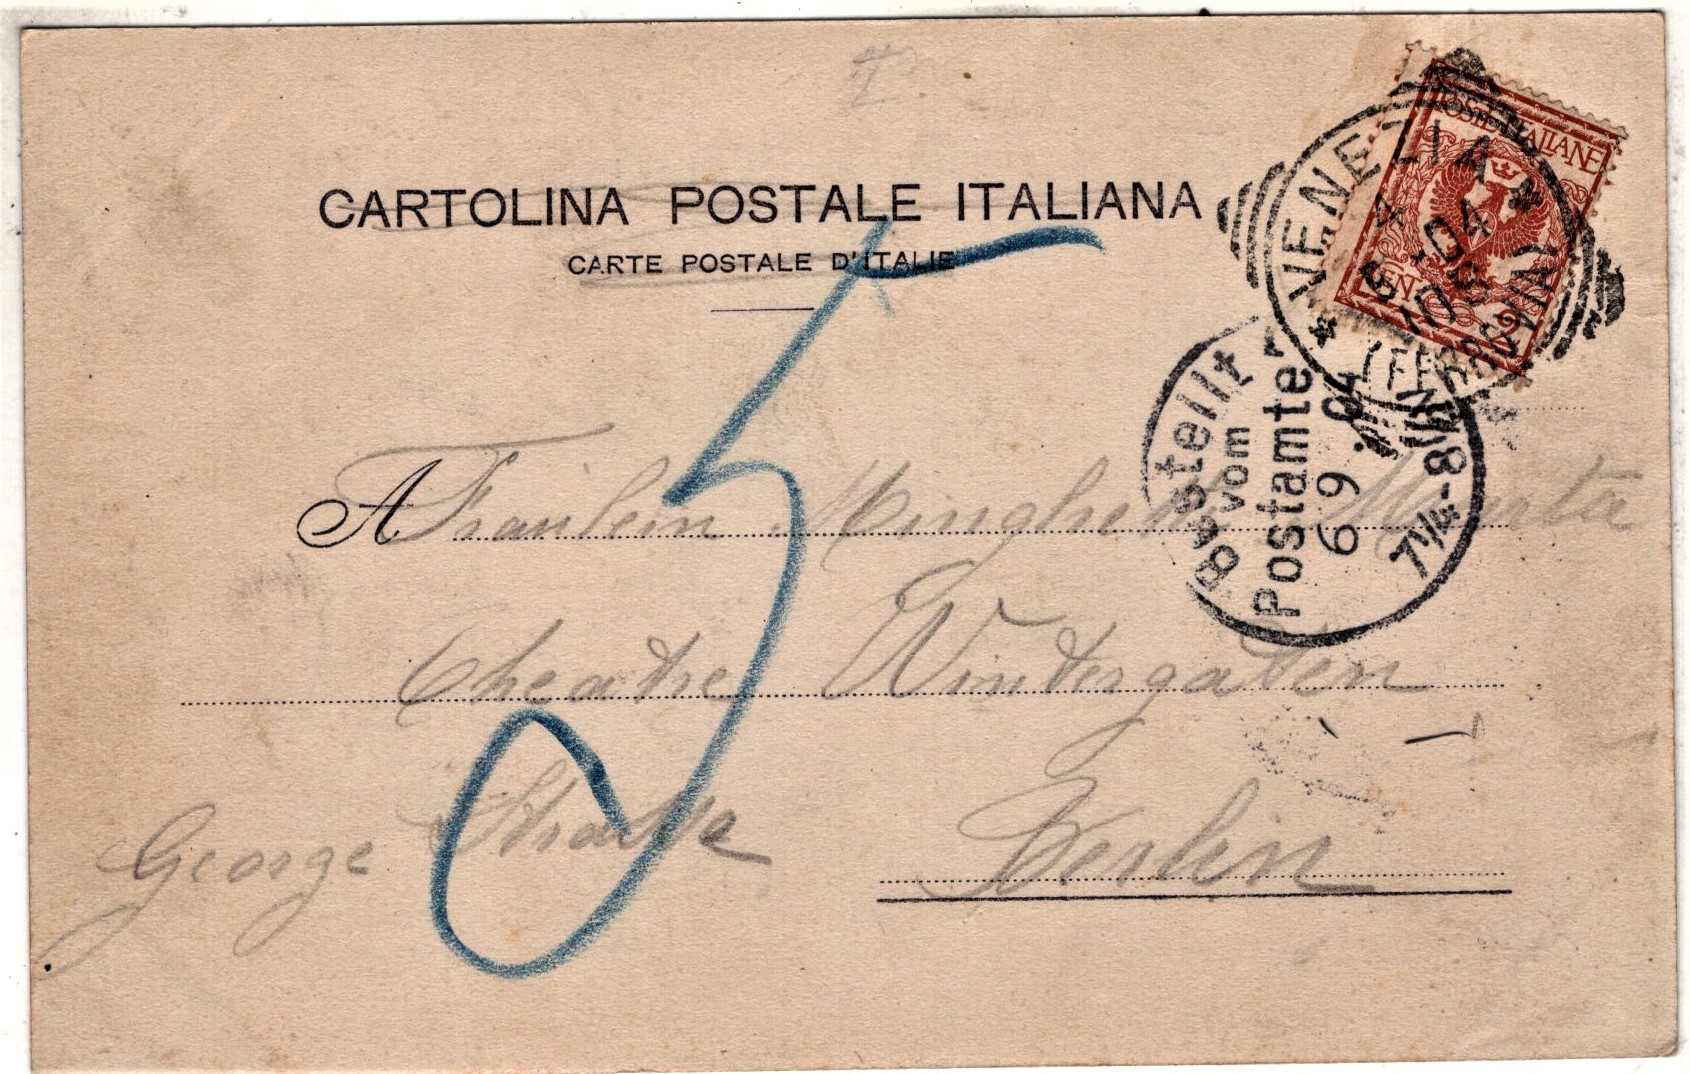 CARTOLINA POSTALE ITALIANA
CARTE POSTALE D'ITALIE
POSTE ITALIANE
CENT 2
VENEZIA
(FERROVIA)
4 04
Bestellt
vom
Postamte
6 9 04
7¼-8½N
5
A Fraulein Minghetti Marta
Theatre Wintergaten
George Strasse
Berlin